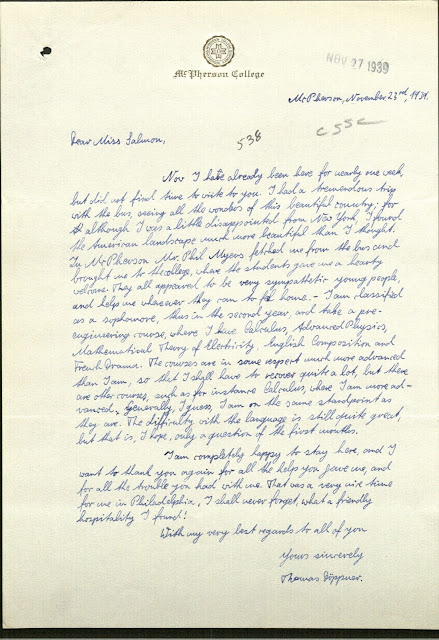 McPherson College
NOV 27 1939
McPherson, November 23rd, 1939.
538
CSSC
Dear Miss Salmon,
Now I have already been here for nearly one week,
but did not find time to write to you. I had a tremendous trip
with the bus, seeing all the wonders of this beautiful country; for
although I was a little disappointed from New York, I found
the American landscape much more beautiful than I thought.
In McPherson Mr. Phil Myers fetched me from the bus and
brought me to the college, where the students gave me a hearty
welcome. They all appeared to be very sympathetic young people,
and help me whenever they can to feel home. - I am classified
as a sophomore, thus in the second year, and take a pre-
engineering course, where I have Calculus, Advanced Physics,
Mathematical Theory of Electricity, English Composition and
French Drama. The courses are in some respect much more advanced
than I am, so that I shall have to recover quite a lot, but there
are other courses, such as for instance Calculus, where I am more ad-
vanced. Generally, I guess, I am on the same standpoint as
they are. The difficulty with the language is still quite great,
but that is, I hope, only a question of the first months.
I am completely happy to stay here, and I
want to thank you again for all the help you gave me, and
for all the trouble you had with me. That was a very nice time
for me in Philadelphia, I shall never forget, what a friendly
hospitality I found!
With my very best regards to all of you
Yours sincerely
Thomas Döppner.